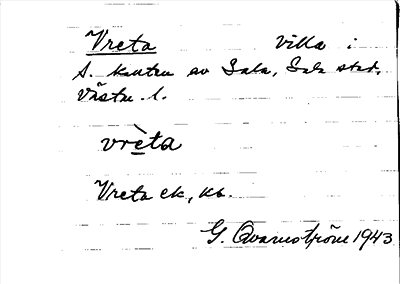 Vreta villa i
s. kanten av Sala, Sala stad.
Västm. l.
vrèta
Vreta ek, kb.
G. Qvarnström 1943